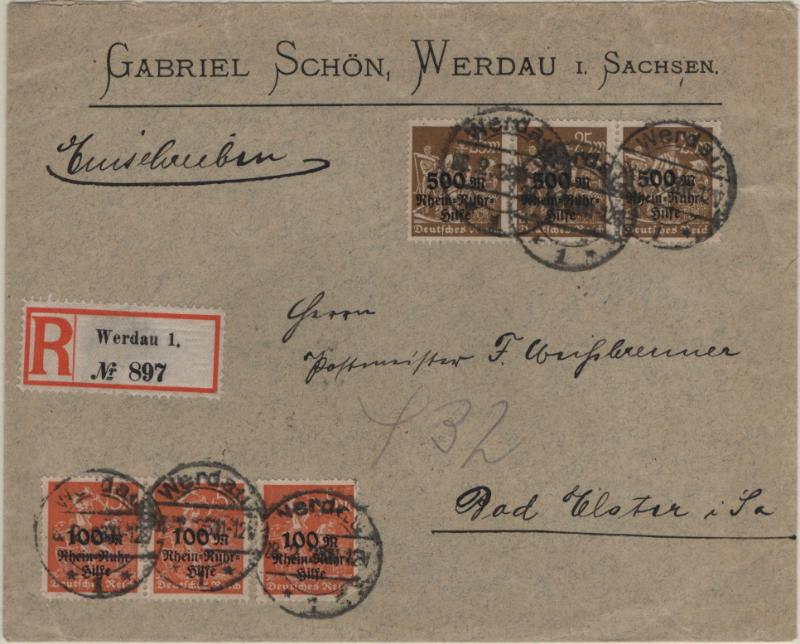 GABRIEL SCHÖN, WERDAU I. SACHSEN.
Einschreiben
25
500 M
Rhein-Ruhr-
Hilfe
Deutsches Reich
25
500 M
Rhein-Ruhr-
Hilfe
Deutsches Reich
500 M
Rhein-Ruhr-
Hilfe
Deutsches Reich
Werdau
Werdau
1
R
Werdau 1.
№ 897
Herrn
Postmeister F. Weißbrenner
132
Bad Elster i Sa
100 M
Rhein-Ruhr-
Hilfe
Deutsches Reich
100 M
Rhein-Ruhr-
Hilfe
Deutsches Reich
100 M
Rhein-Ruhr-
Hilfe
Deutsches Reich
Werdau
Werdau
Werdau
1